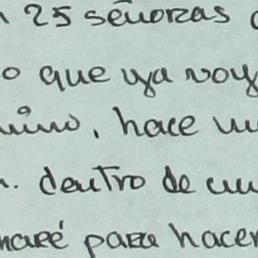 25 señoras
o que ya voy
, hace
. dentro de
para hacer